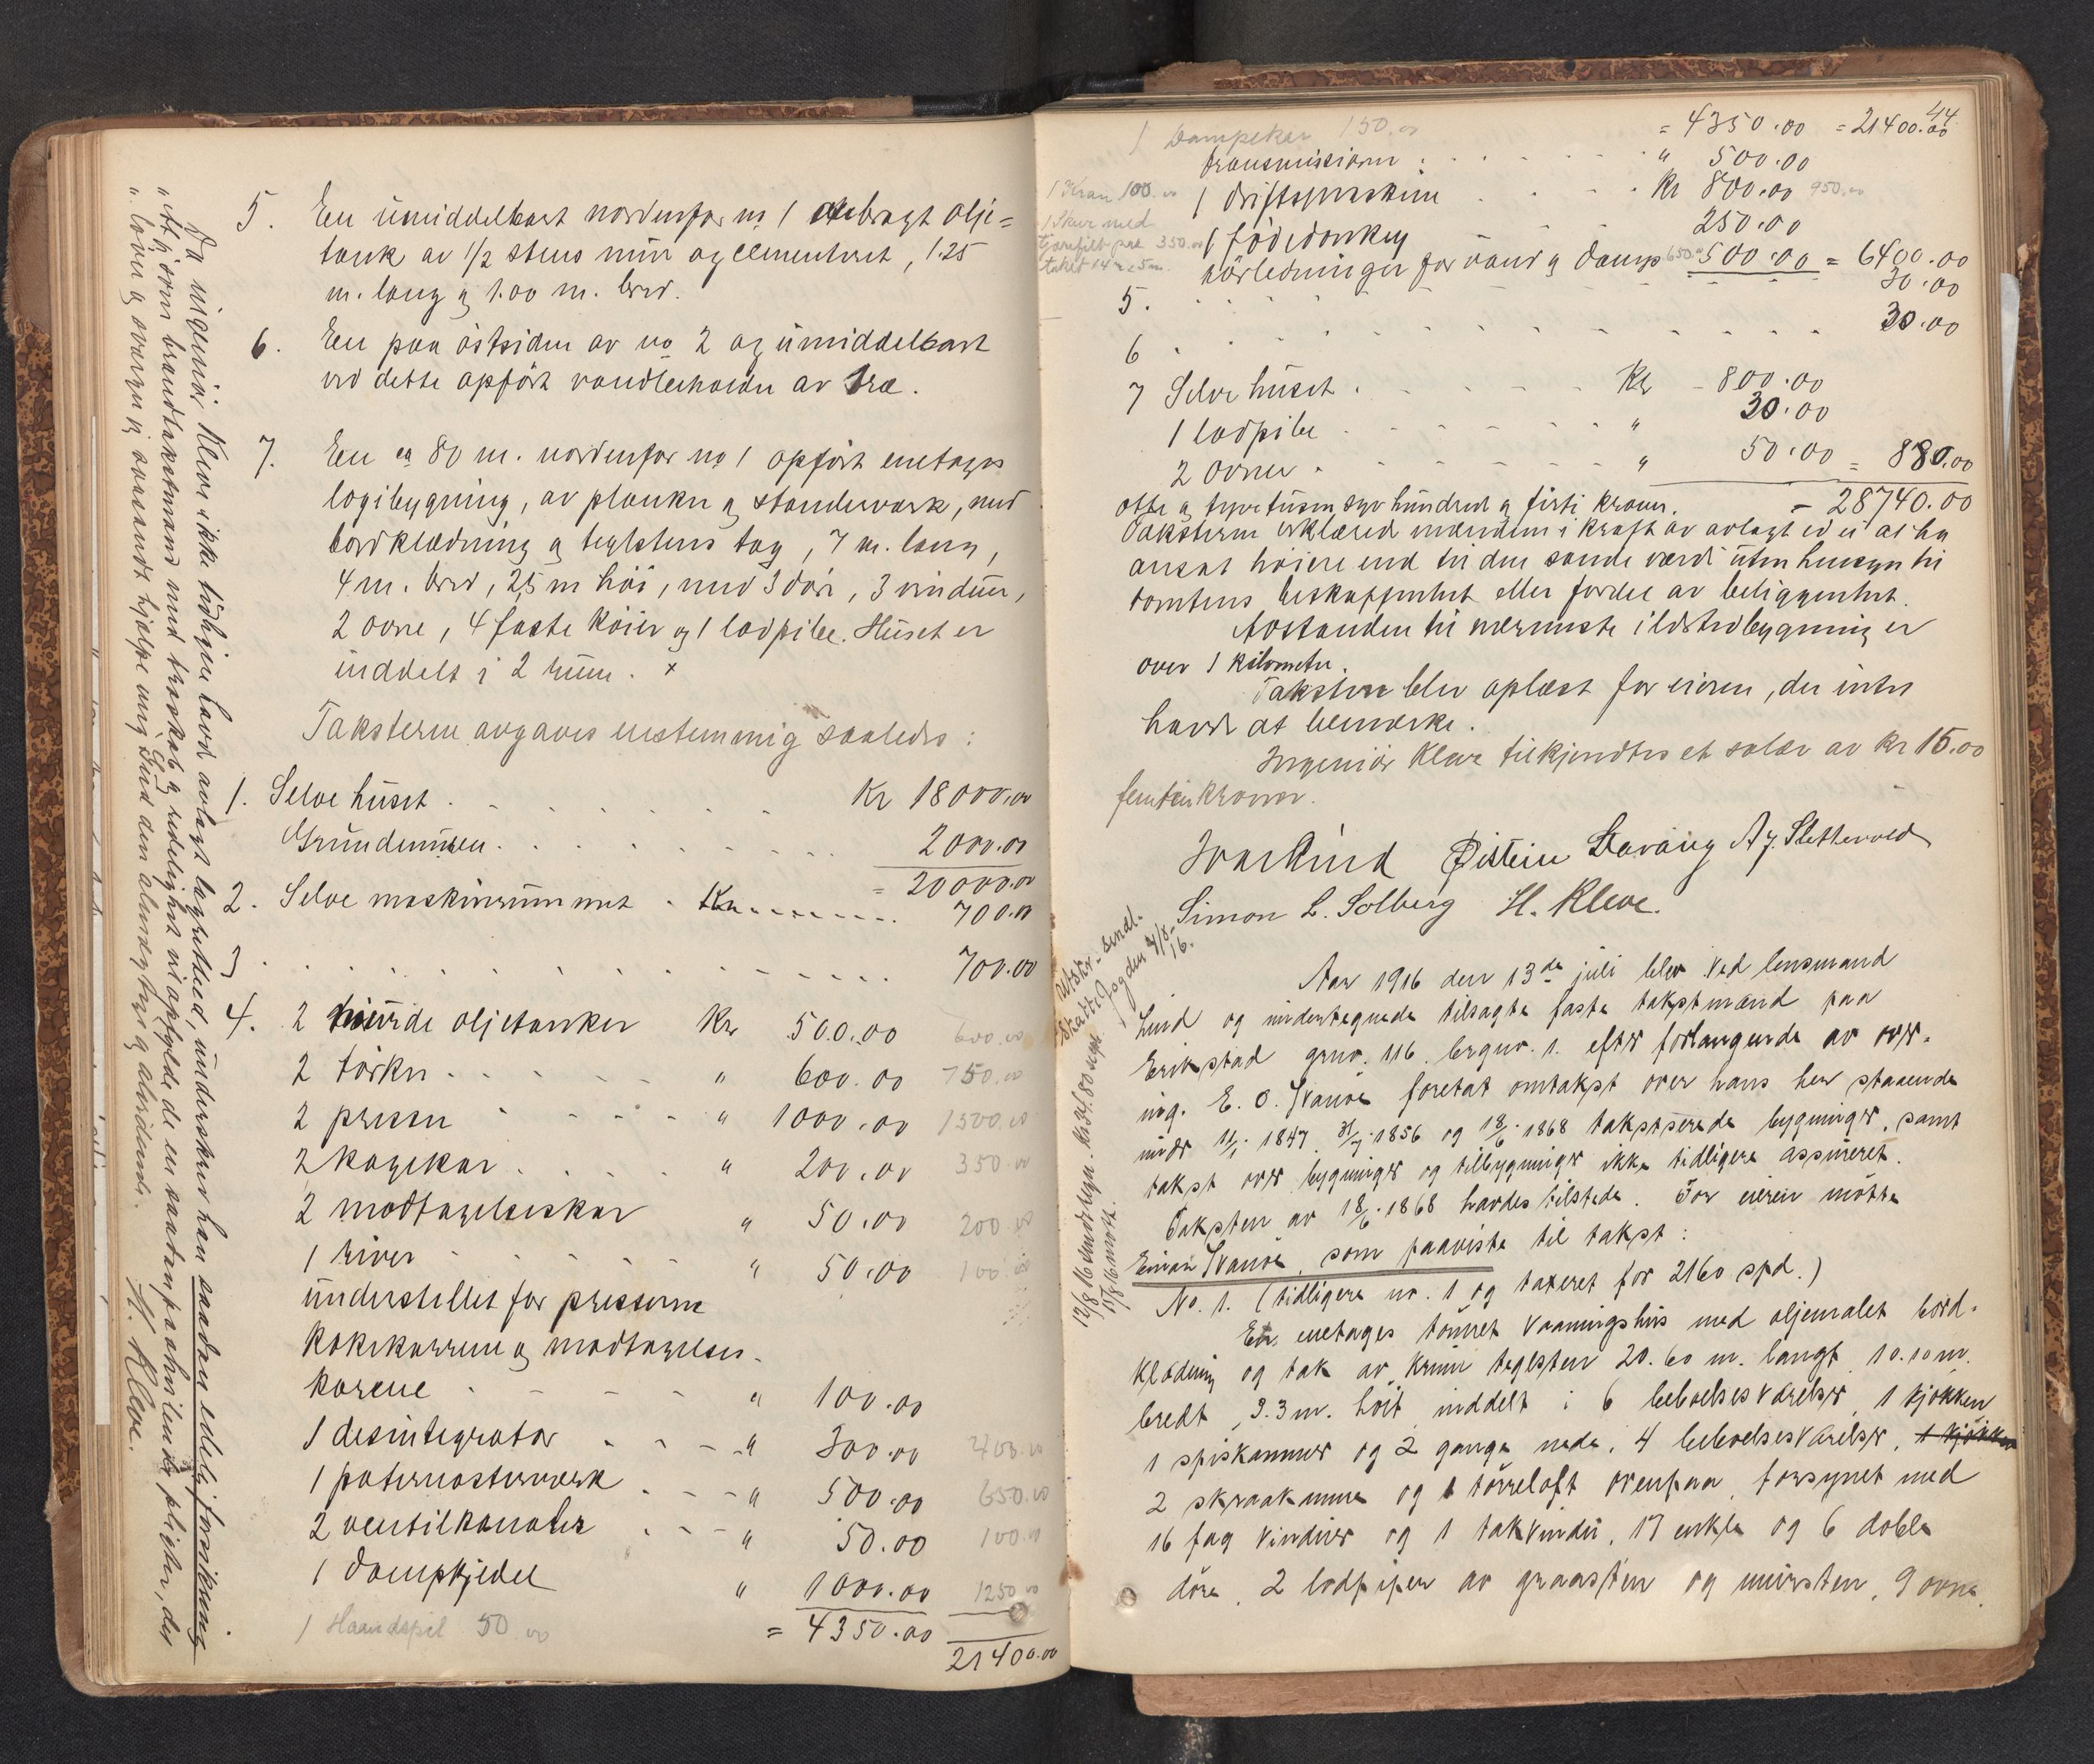 5. En umiddelbart nordenfor no 1 anbragt olje=
tank av 1/2 stens mur og cementeret, 1.25
m. lang og 1.00 m. bred.
6. En paa östsiden av no 2 og umiddelbart
ved dette opfört vandbeholder av træ.
7. En ca 80 m. nordenfor no 1 opfört enetages
logibygning, av planker og standerværk, med
bordklædning og teglstens tag, 7 m. lang,
4 m. bred, 2,5 m höi, med 3 döre, 3 vinduer,
2 ovne, 4 faste köier og 1 lodpibe. Huset er
inddelt i 2 rum. x
Taksterne avgaves enstemmig saaledes:
1. Selve huset . . . . . Kr 18000.00
Grundmuren . . . . . 2000.00
= 20000.00
2. Selve maskinrummet . Kr . . . . 700.00
3 . . . . . 700.00
4. 2 murede oljetanker Kr 500.00 600.00
2 törker . . . . " 600.00 750.00
2 presser . . . . " 1000.00 1500.00
2 kogekar . . . . " 200.00 350.00
2 modtagelseskar " 50.00 200.00
1 river . . . . " 50.00 100.00
understellet for presserne
kokekarrene og modtagelses-
karene . . . . " 100.00
1 desintegrator . . . . " 300.00 400.00
1 paternosterværk . . . " 500.00 650.00
2 ventilkanaler . . . " 50.00 100.00
1 dampkjedel " 1000.00 1250.00
1 Haandspil 50.00 = 4350.00
21400.00
Da ingeniör Kleve ikke tidligere havd avlagt lagrettesed, underskrev han saadan edelig forsikring
"At jeg som brandtakstmand med troskab og redelighet vil opfylde de en saadan paahvilende pligter, det
"lover og sværger jeg, saasandt hjælpe mig Gud den almægtige og alvidende.
H. Kleve.
44.
1 Dampekar 150.00 = 4350.00 = 21400.00
transmissionen . . . . " 500.00
1 Kran 100.00 1 driftsmaskine . . . Kr 800.00 950.00
1 Skur med
tjærefilt paa 350.00 1 födedonkey 250.00
taket 14 x 5 m.
rörledninger for vand og damp 650.00 500.00 = 6400.00
5. . . . . . 30.00
6 . . . . . 30.00
7 Selve huset . . . . . Kr 800.00
1 lodpibe . . . . . " 30.00
2 ovner . . . . . " 50.00 = 880.00
otte og tyvetusen syv hundred og firti kroner. = 28740.00
Taksterne erklæred mændene i kraft av avlagt ed ei at ha
ansat höiere end til den sande værdi uten hensyn til
tomtens beskaffenhet eller fordel av beliggenhet.
Avstanden til nærmeste ildstedbygning er
over 1 kilometer.
Taksten blev oplæst for eieren, der intet
havde at bemærke.
Ingeniör Kleve tilkjendtes et salær av kr 15.00
femten kroner.
Ivar Lind Øistein Davang A. J. Slettevold
Simon L. Solberg H. Kleve.
Utskr. sendt
skattefogden 24/8.
16.
12/8 16 Brandregn. Meldt. 80 sept
15/8 16 mott.
Aar 1916 den 13de juli blev ved lensmand
Lind og undertegnede tilsagte faste takstmænd paa
Erikstad grno. 116 brgno. 1. efter forlangende av ovr.
ing. E. O. Svanøe foretat omtakst over hans her staaende
under 11/1. 1847. 31/7. 1856 og 18/6. 1868 takstserede bygninger, samt
takst over bygninger og tilbygninger ikke tidligere assureret.
Taksten av 18/6. 1868 havdes tilstede. For eieren mötte
Einar Svanøe, som paaviste til takst:
No. 1. (tidligere no. 1 og taxeret for 2160 spd.)
En enetages tömret vaaningshus med oljemalet bord-
klædning og tak av krum teglsten 20.60 m. langt 10.10 m.
bredt, 3.3 m. höit inddelt i 6 beboelsesværelser, 1 kjøkken
1 spiskammer og 2 gange nede, 4 beboelsesværelser, 1 kjökken
2 skraakammer og 1 törreloft ovenpaa, forsynet med
16 fag vinduer og 1 takvindu, 17 enkle og 6 doble
döre, 2 lodpiper av graasten og mursten, 9 ovne,